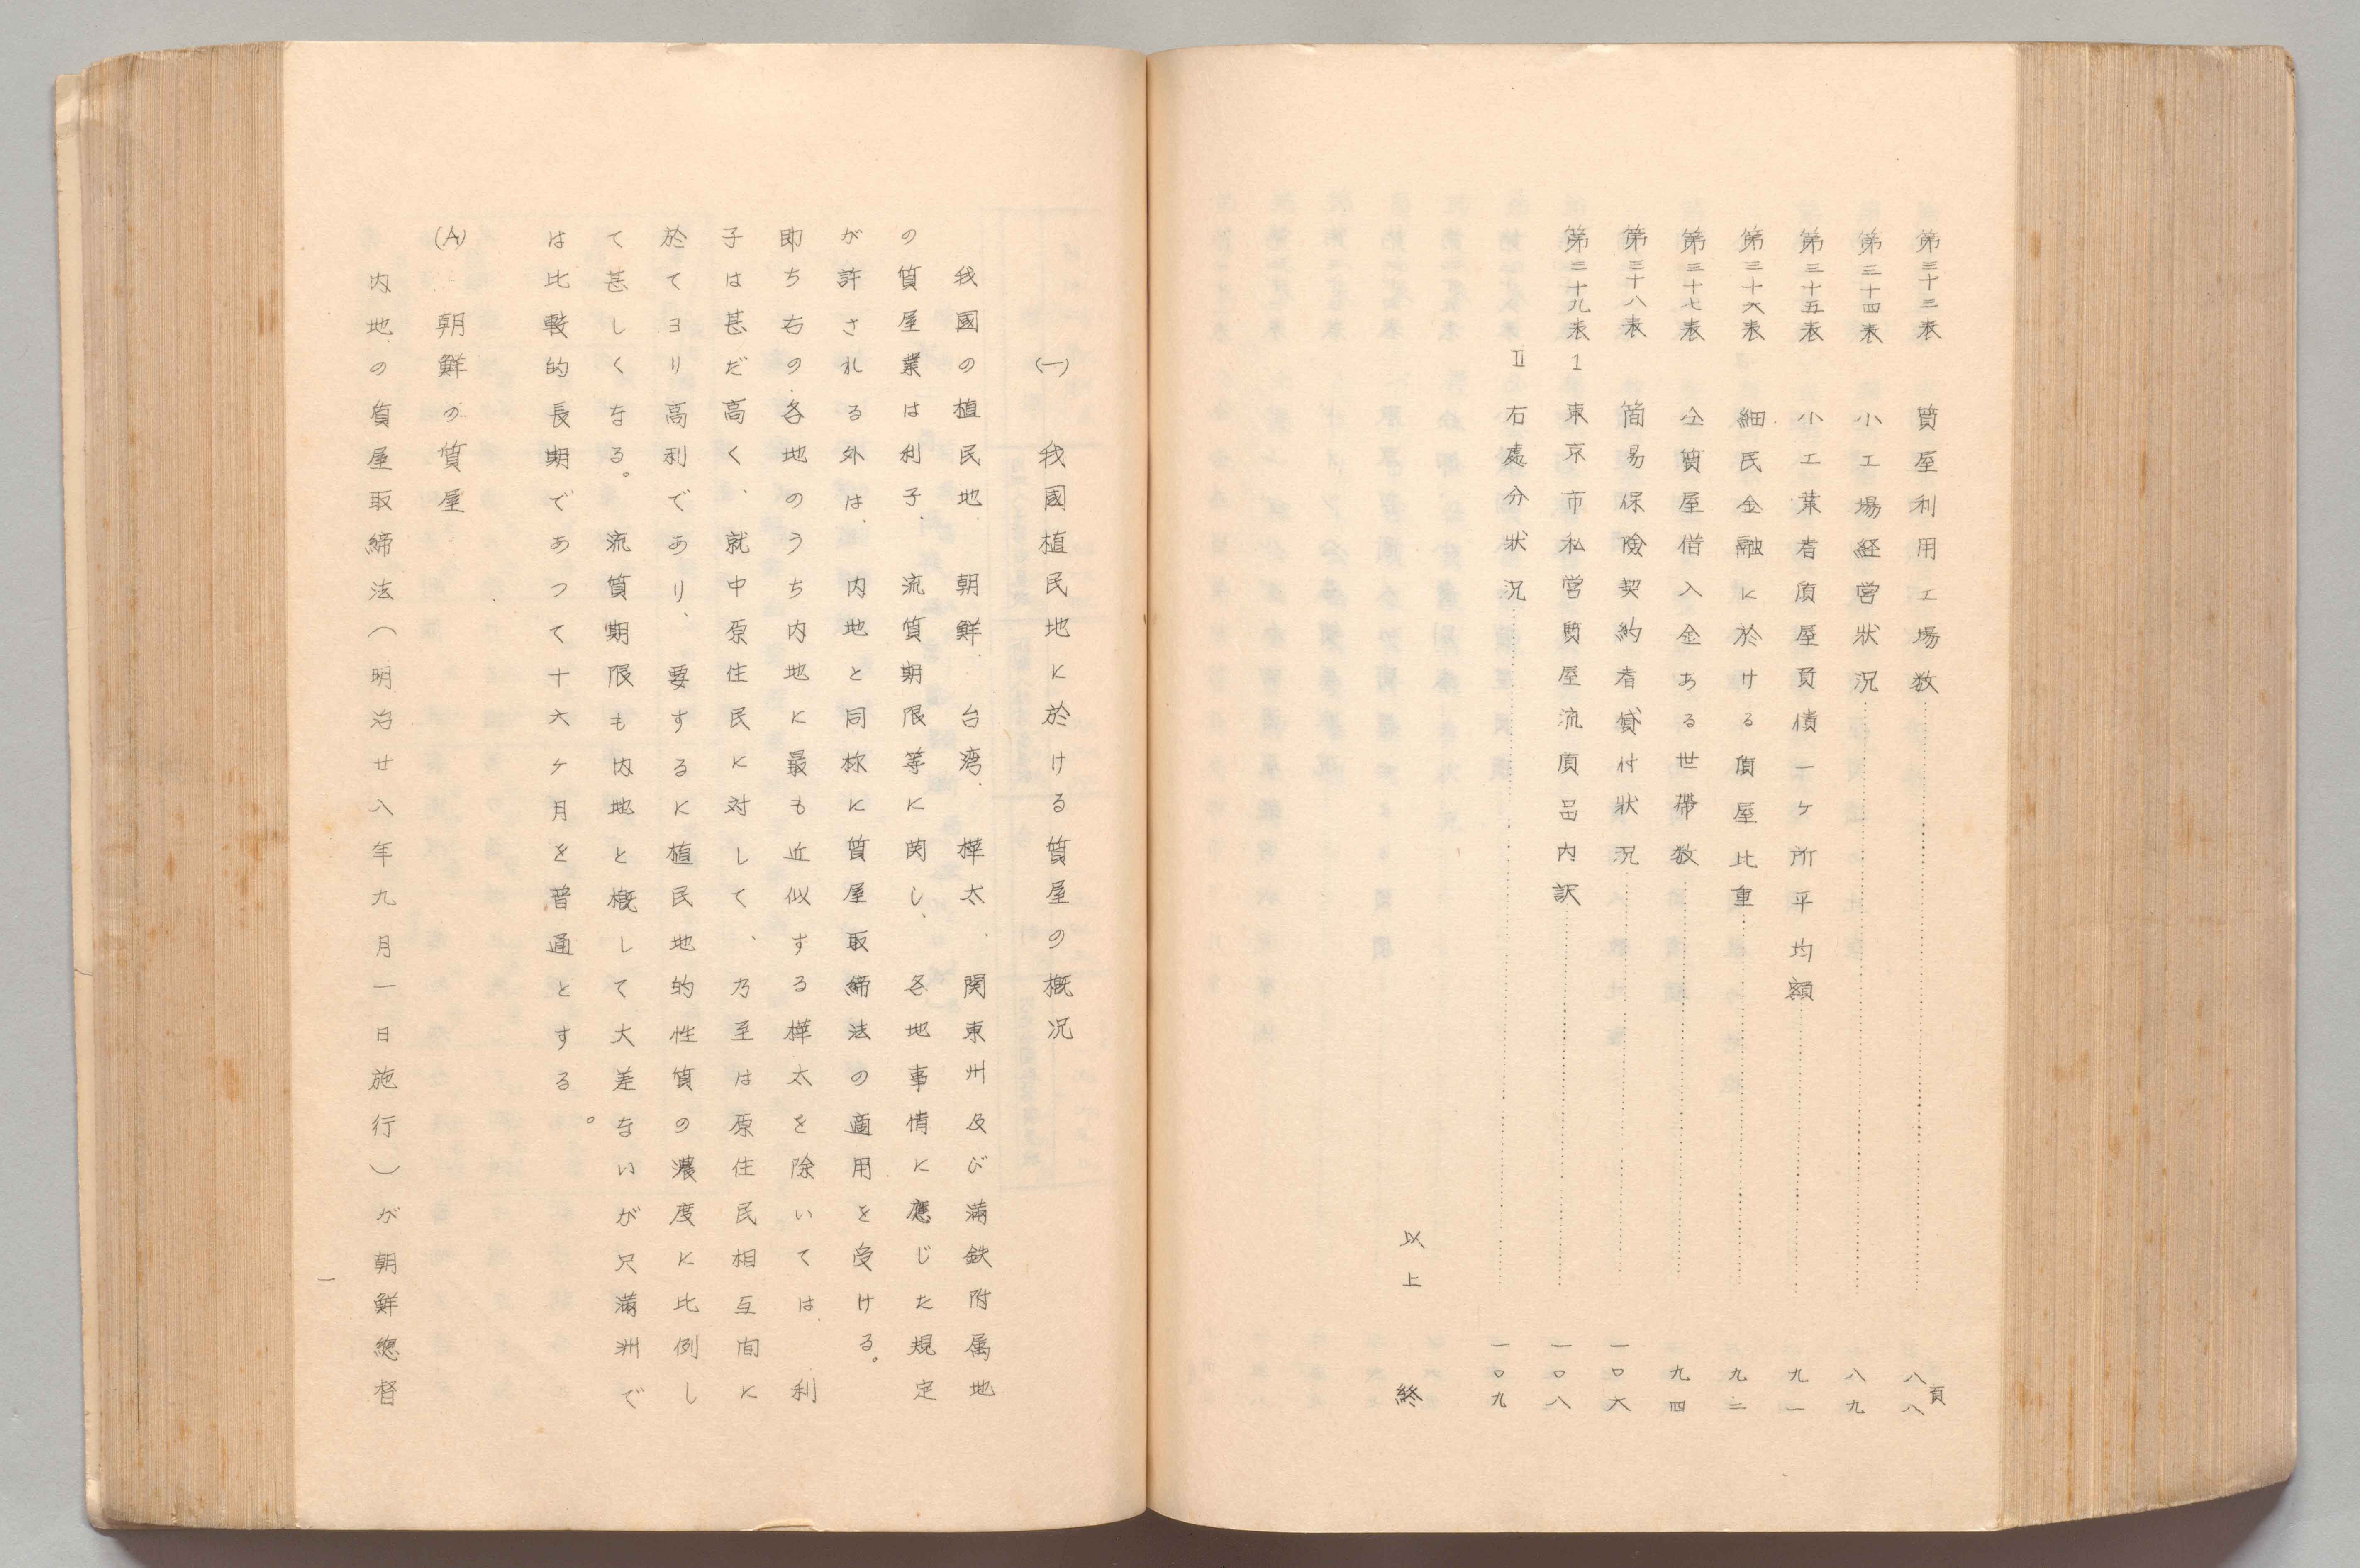 頁
第三十三表 質屋利用工場数 八八
第三十四表 小工場経営状況 八九
第三十五表 小工業者質屋負債一ヶ所平均額 九一
第三十六表 細民金融に於ける質屋比重 九二
第三十七表 仝質屋借入金ある世帯数 九四
第三十八表 簡易保険契約者貸付状況 一〇六
第三十九表 1 東京市私営質屋流質品内訳 一〇八
Ⅱ 右處分状況 一〇九
以上 終
(一) 我國植民地に於ける質屋の概況
我國の植民地、朝鮮、台湾、樺太、関東州及び満鉄附属地
の質屋業は利子、流質期限等に関し、各地事情に應じた規定
が許される外は、内地と同称に質屋取締法の適用を受ける。
即ち右の各地のうち内地に最も近似する樺太を除いては、利
子は甚だ高く、就中原住民に対して、乃至は原住民相互間に
於てヨリ高利であり、要するに植民地的性質の濃度に比例し
て甚しくなる。流質期限も内地と概して大差ないが只満洲で
は比較的長期であつて十六ヶ月を普通とする。
(A) 朝鮮の質屋
内地の質屋取締法(明治廿八年九月一日施行)が朝鮮總督
一